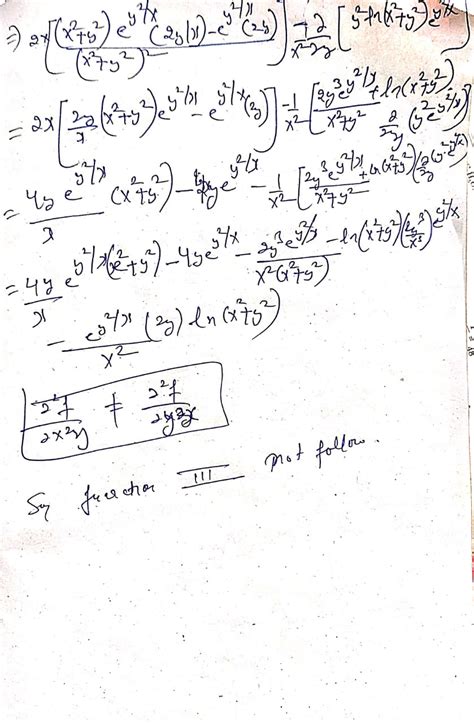 ⇒ 2x[((x²+y²) e^(y²/x) (2y/x) - e^(y²/x) (2y))/(x²+y²)²] - 1/x² ∂/∂y [y² ln(x²+y²) e^(y²/x)]
= 2x[2y/x (x²+y²) e^(y²/x) - e^(y²/x) (2y)] - 1/x² [2y³e^(y²/x)/(x²+y²) + ln(x²+y²) ∂/∂y (y² e^(y²/x))]
= 4y e^(y²/x)/x (x²+y²) - 4xy e^(y²/x) - 1/x² [2y³e^(y²/x)/(x²+y²) + ln(x²+y²) (∂/∂y (y² e^(y²/x)))]
= 4y/x e^(y²/x) (x²+y²) - 4y e^(y²/x) - 2y³e^(y²/x)/(x²(x²+y²)) - ln(x²+y²) (2y³/x³) e^(y²/x)
- e^(y²/x)/x² (2y) ln(x²+y²)
∂²f/∂x∂y ≠ ∂²f/∂y∂x
So function III not follow.